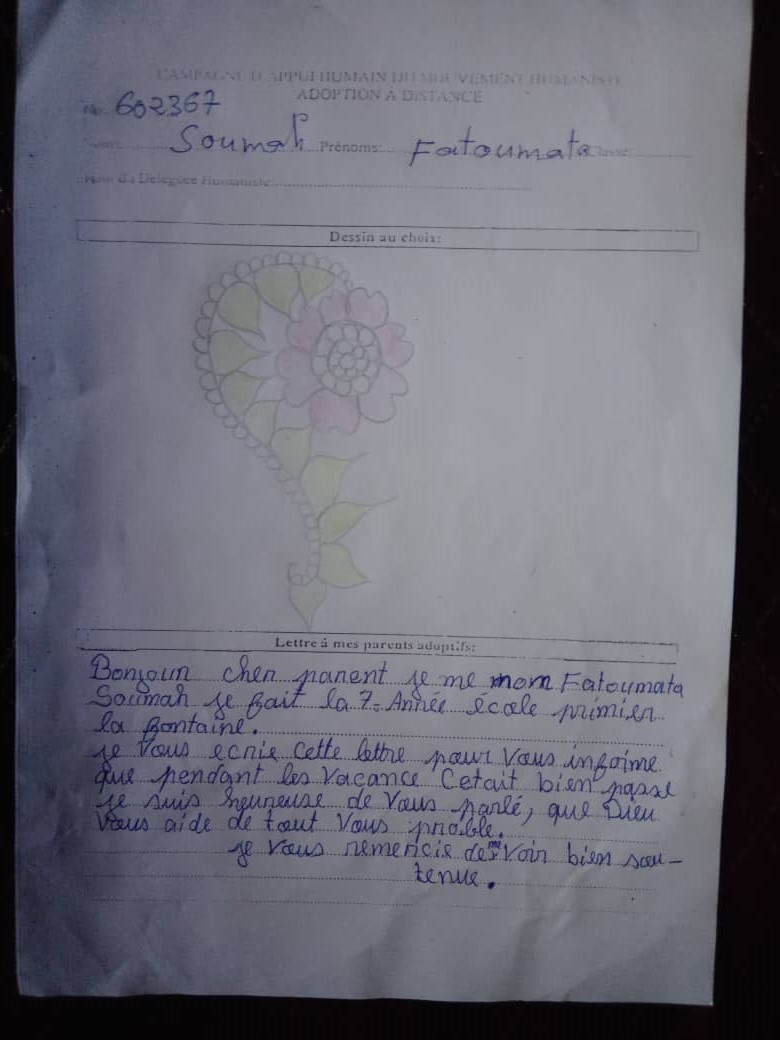 CAMPAGNE D'APPUI HUMAIN DU MOUVEMENT HUMANISTE
ADOPTION À DISTANCE
No 602367
Nom: Soumah Prénoms: Fatoumata Classe:
Nom du Délégué Humaniste:
Dessin au choix:
Lettre à mes parents adoptifs:
Bonjour cher parent je me nom Fatoumata
Soumah je fait la 7e Année école primier
la fontaine.
je vous ecrie cette lettre pour vous informe
que pendant les vacance Cetait bien passe
je suis heureuse de vous parlé, que Dieu
vous aide de tout vous proble.
je vous remercie de m'avoir bien sou-
tenue.